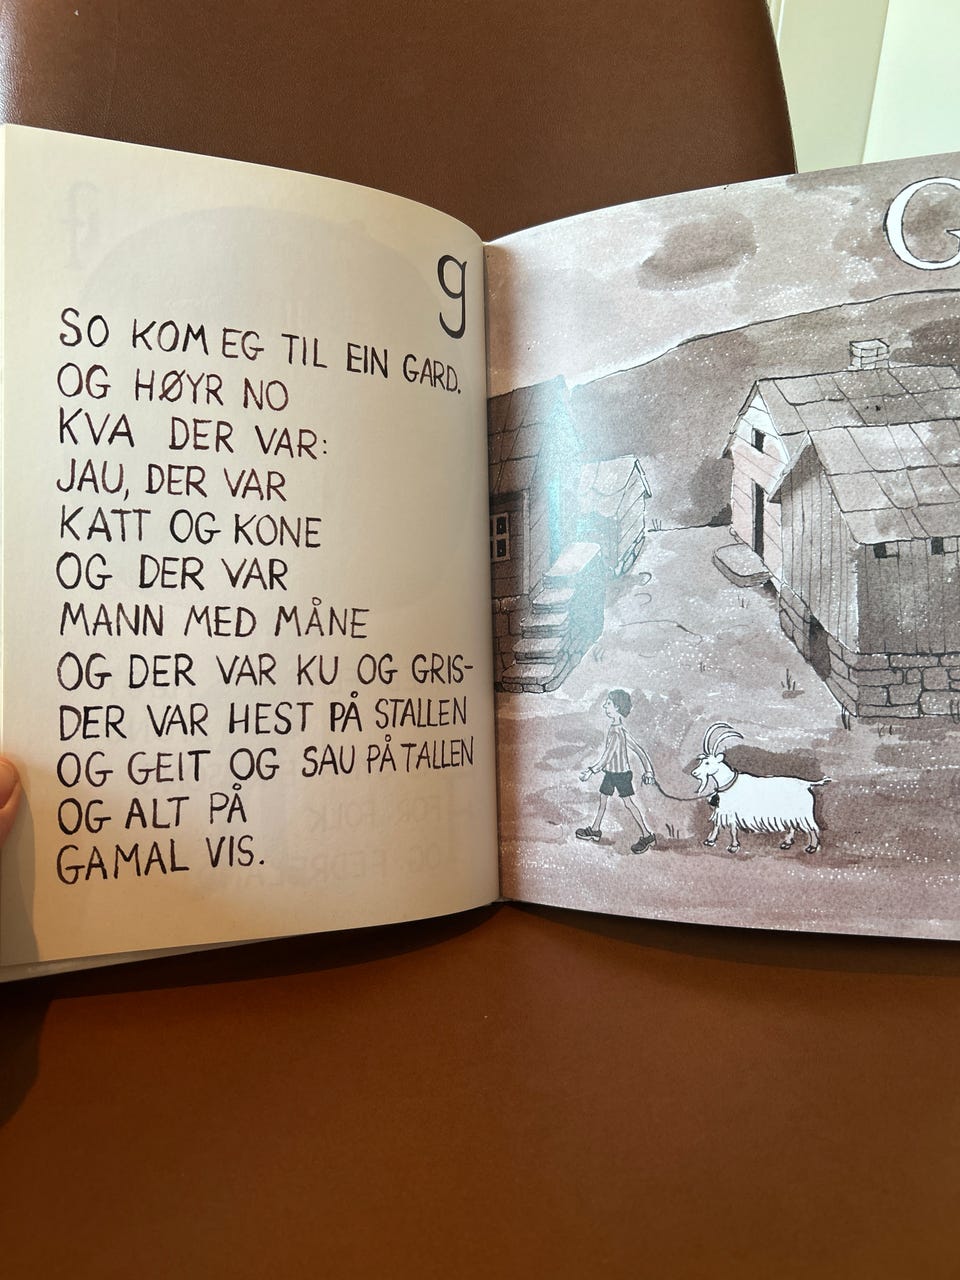 g
SO KOM EG TIL EIN GARD.
OG HØYR NO
KVA DER VAR:
JAU, DER VAR
KATT OG KONE
OG DER VAR
MANN MED MÅNE
OG DER VAR KU OG GRIS-
DER VAR HEST PÅ STALLEN
OG GEIT OG SAU PÅ TALLEN
OG ALT PÅ
GAMAL VIS.
G